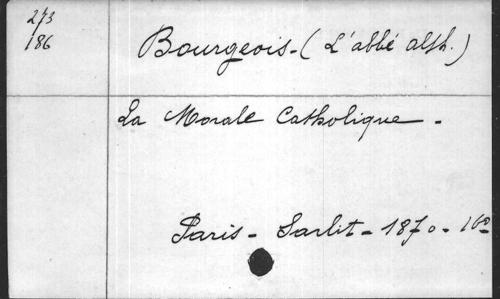 273
186
Bourgeois - (L'abbé alph.)
La Morale Catholique -
Paris - Sarlit - 1870 - 16º